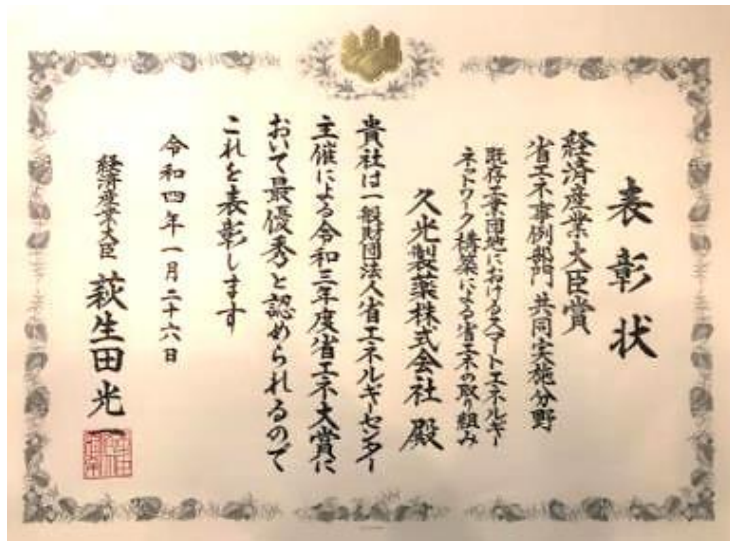 表彰状
経済産業大臣賞
省エネ事例部門 共同実施分野
既存工業団地におけるスマートエネルギー
ネットワーク構築による省エネの取り組み
久光製薬株式会社 殿
貴社は一般財団法人省エネルギーセンター
主催による令和三年度省エネ大賞に
おいて最優秀と認められるので
これを表彰します
令和四年一月二十六日
経済産業大臣 萩生田光一